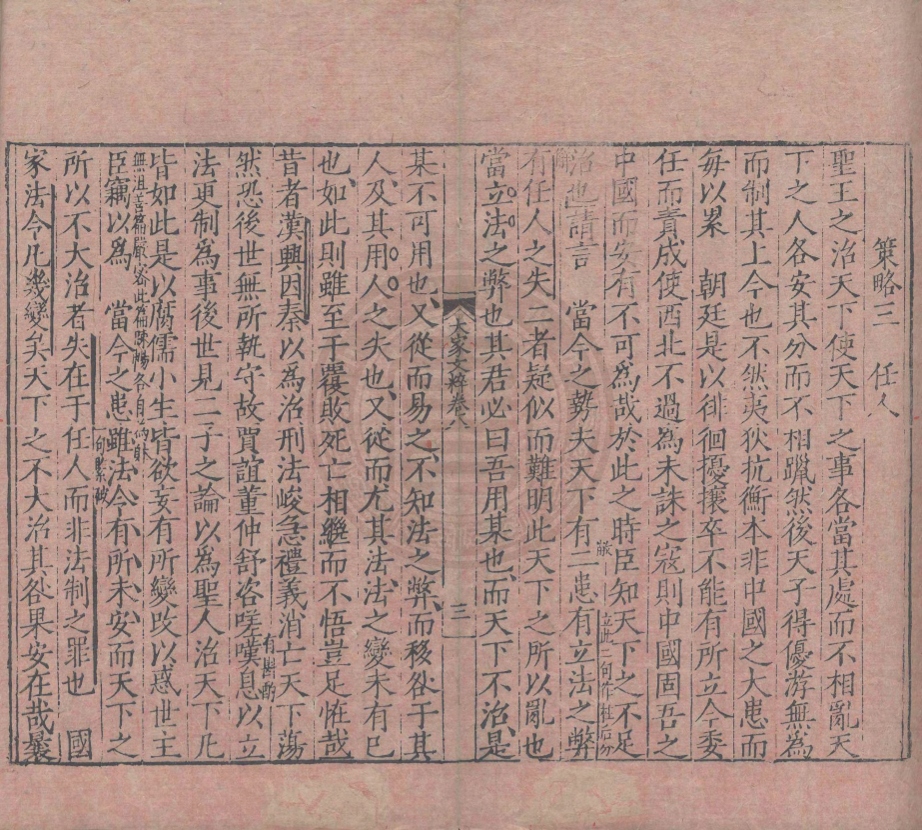 策略三　任人
聖王之治天下使天下之事各當其處而不相亂天
下之人各安其分而不相躐然後天子得優游無為
而制其上今也不然夷狄抗衡本非中國之大患而
每以累　朝廷是以徘徊擾攘卒不能有所立今委
任而責成使西北不過為未誅之寇則中國固吾之
中國而安有不可為哉於此之時臣知天下之不足
治也請言　當今之勢夫天下有二患有立法之弊
立此二句作柱后分
有任人之失二者疑似而難明此天下之所以亂也
當立法之弊也其君必曰吾用某也而天下不治是
大家文粹卷八
三
某不可用也又從而易之不知法之弊而移咎于其
人及其用人之失也又從而尤其法法之變未有已
也如此則雖至于覆敗死亡相繼而不悟豈足怪哉
昔者漢興因秦以為治刑法峻急禮義消亡天下蕩
然恐後世無所執守故賈誼董仲舒咨嗟嘆息以立
有斷
法更制為事後世見二子之論以為聖人治天下凡
皆如此是以腐儒小生皆欲妄有所變改以惑世主
臣竊以為　當今之患雖法令有所未安而天下之
所以不大治者失在于任人而非法制之罪也　國
家法令凡幾變矣天下之不大治其咎果安在哉曩